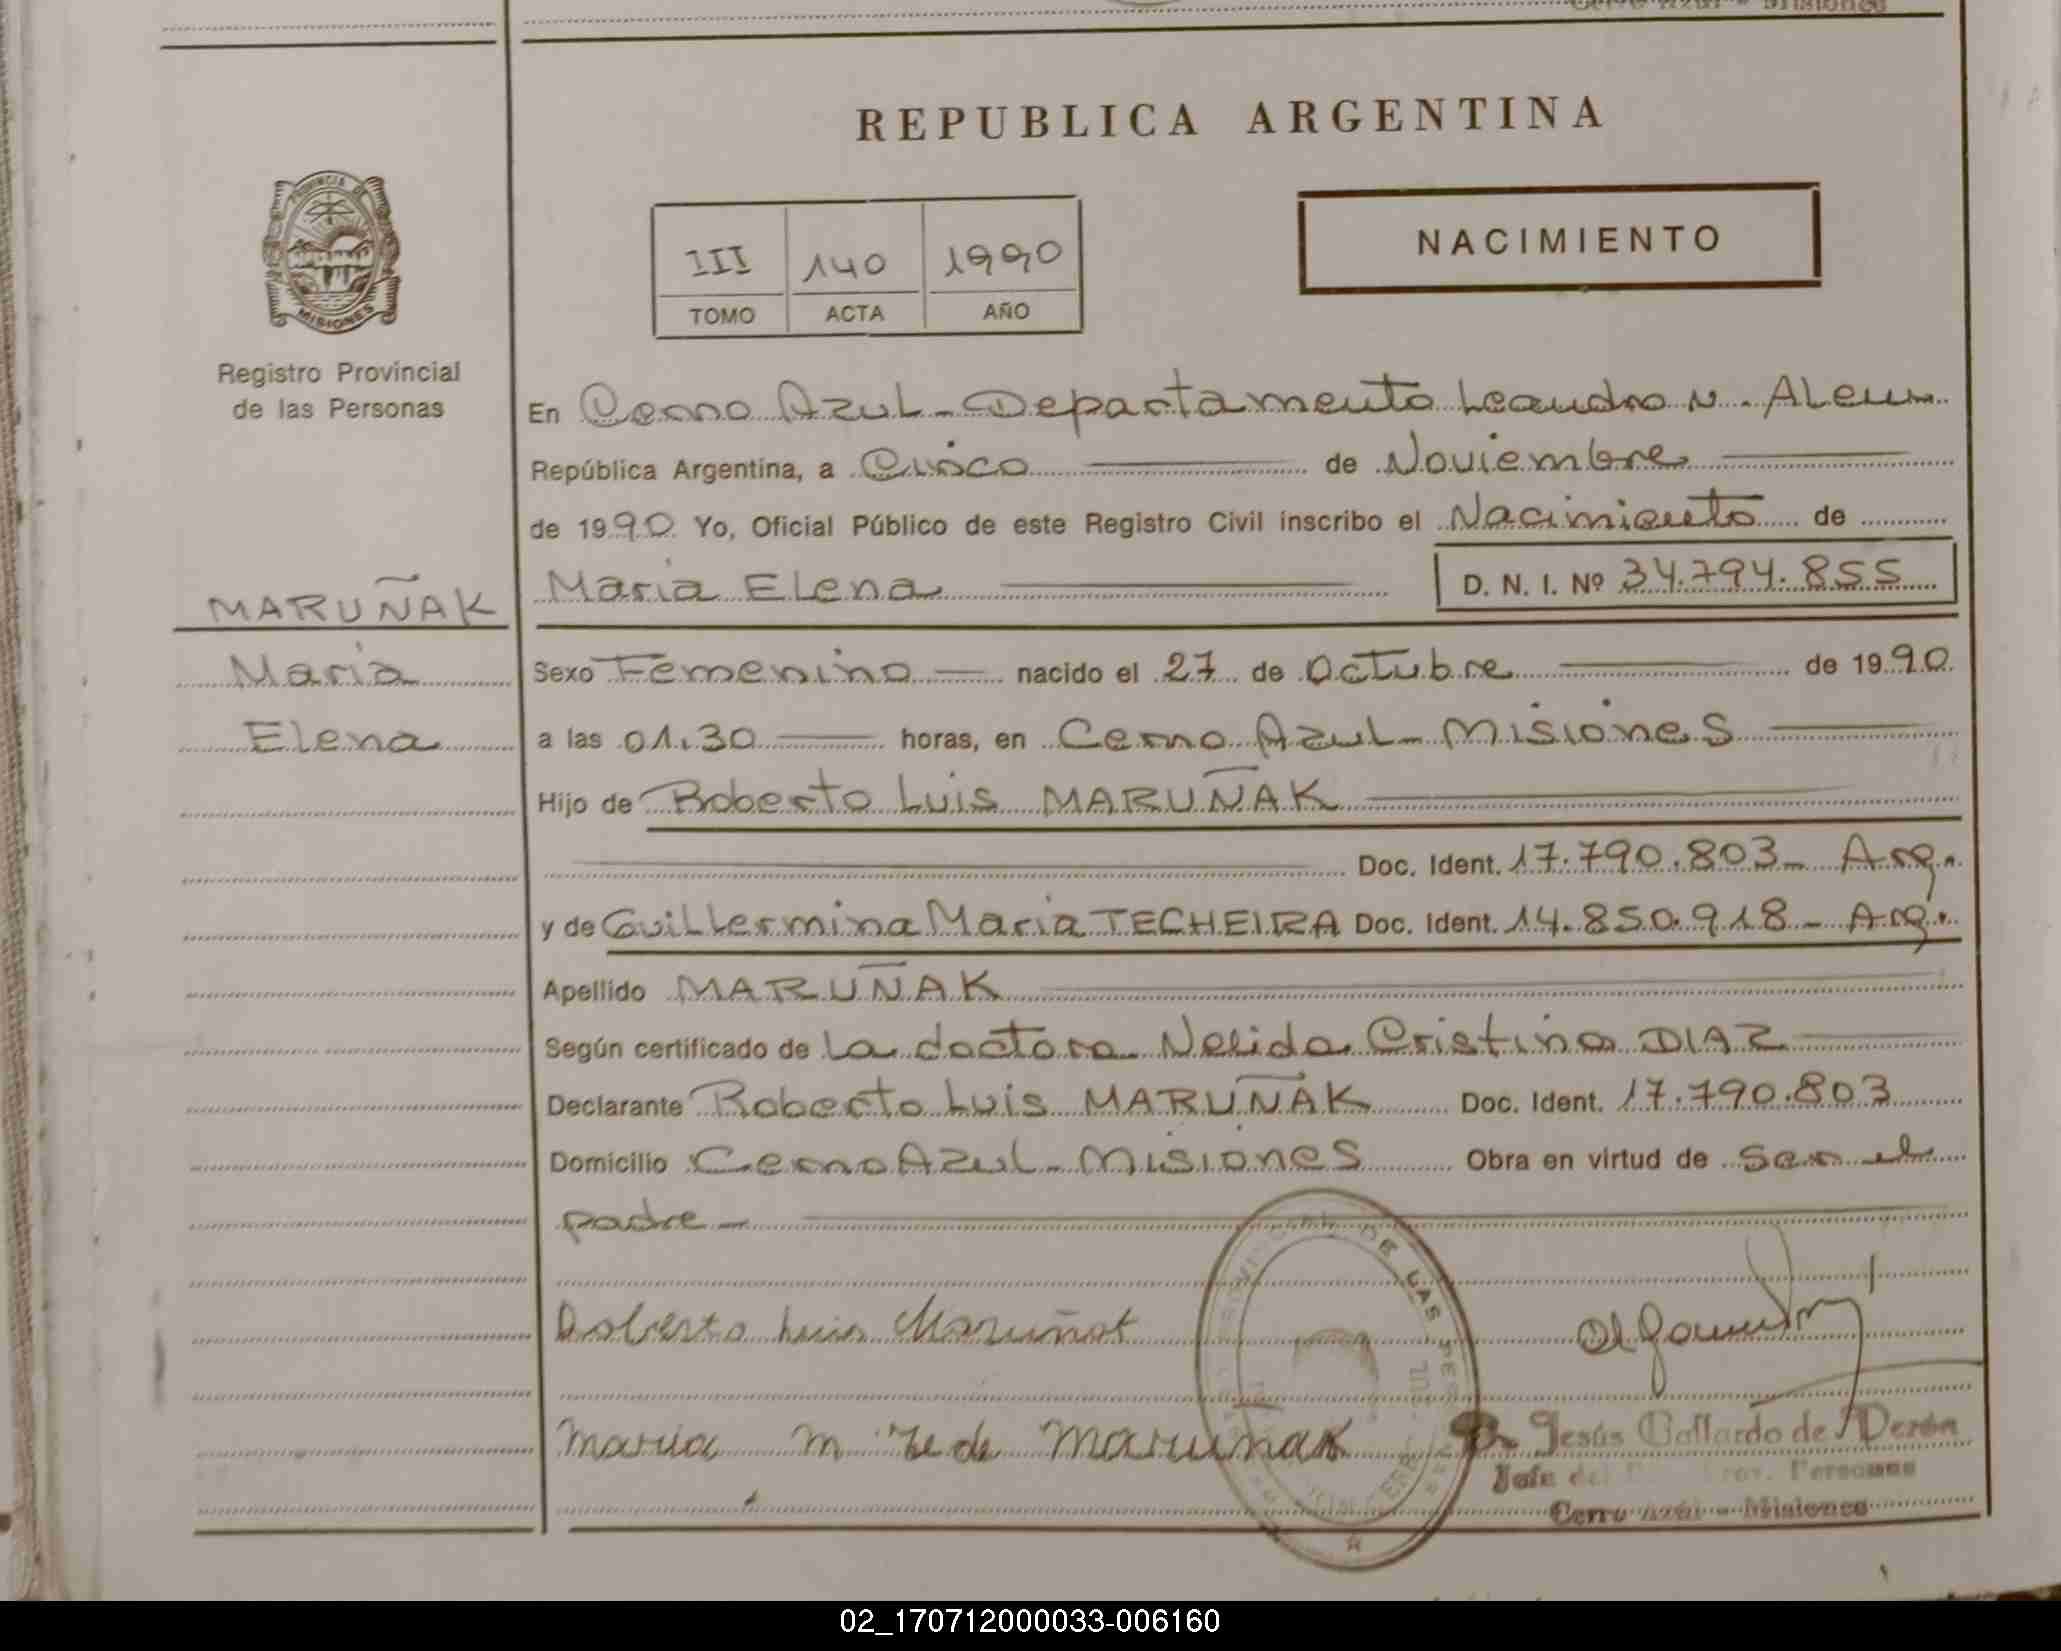 REPUBLICA ARGENTINA
PROVINCIA DE
MISIONES
Registro Provincial
de las Personas
III 140 1990
TOMO ACTA AÑO
NACIMIENTO
En Cerro Azul - Departamento Leandro N. Alem
República Argentina, a Cinco de Noviembre
de 1990 Yo, Oficial Público de este Registro Civil inscribo el Nacimiento de
Maria Elena D. N. I. Nº 34.794.855
MARUÑAK
Maria
Elena
Sexo Femenino nacido el 27 de Octubre de 1990
a las 01.30 horas, en Cerro Azul - Misiones
Hijo de Roberto Luis MARUÑAK
Doc. Ident. 17.790.803 - Arg.
y de Guillermina Maria TECHEIRA Doc. Ident. 14.850.918 - Arg.
Apellido MARUÑAK
Según certificado de la doctora Nelida Cristina DIAZ
Declarante Roberto Luis MARUÑAK Doc. Ident. 17.790.803
Domicilio Cerro Azul - Misiones Obra en virtud de ser el
padre -
DE LAS
Roberto Luis Maruñak
Maria M T de de Maruñak
Jesús Gallardo de Perón
Jefe del Prov. Personas
Cerro Azul - Misiones
02_170712000033-006160